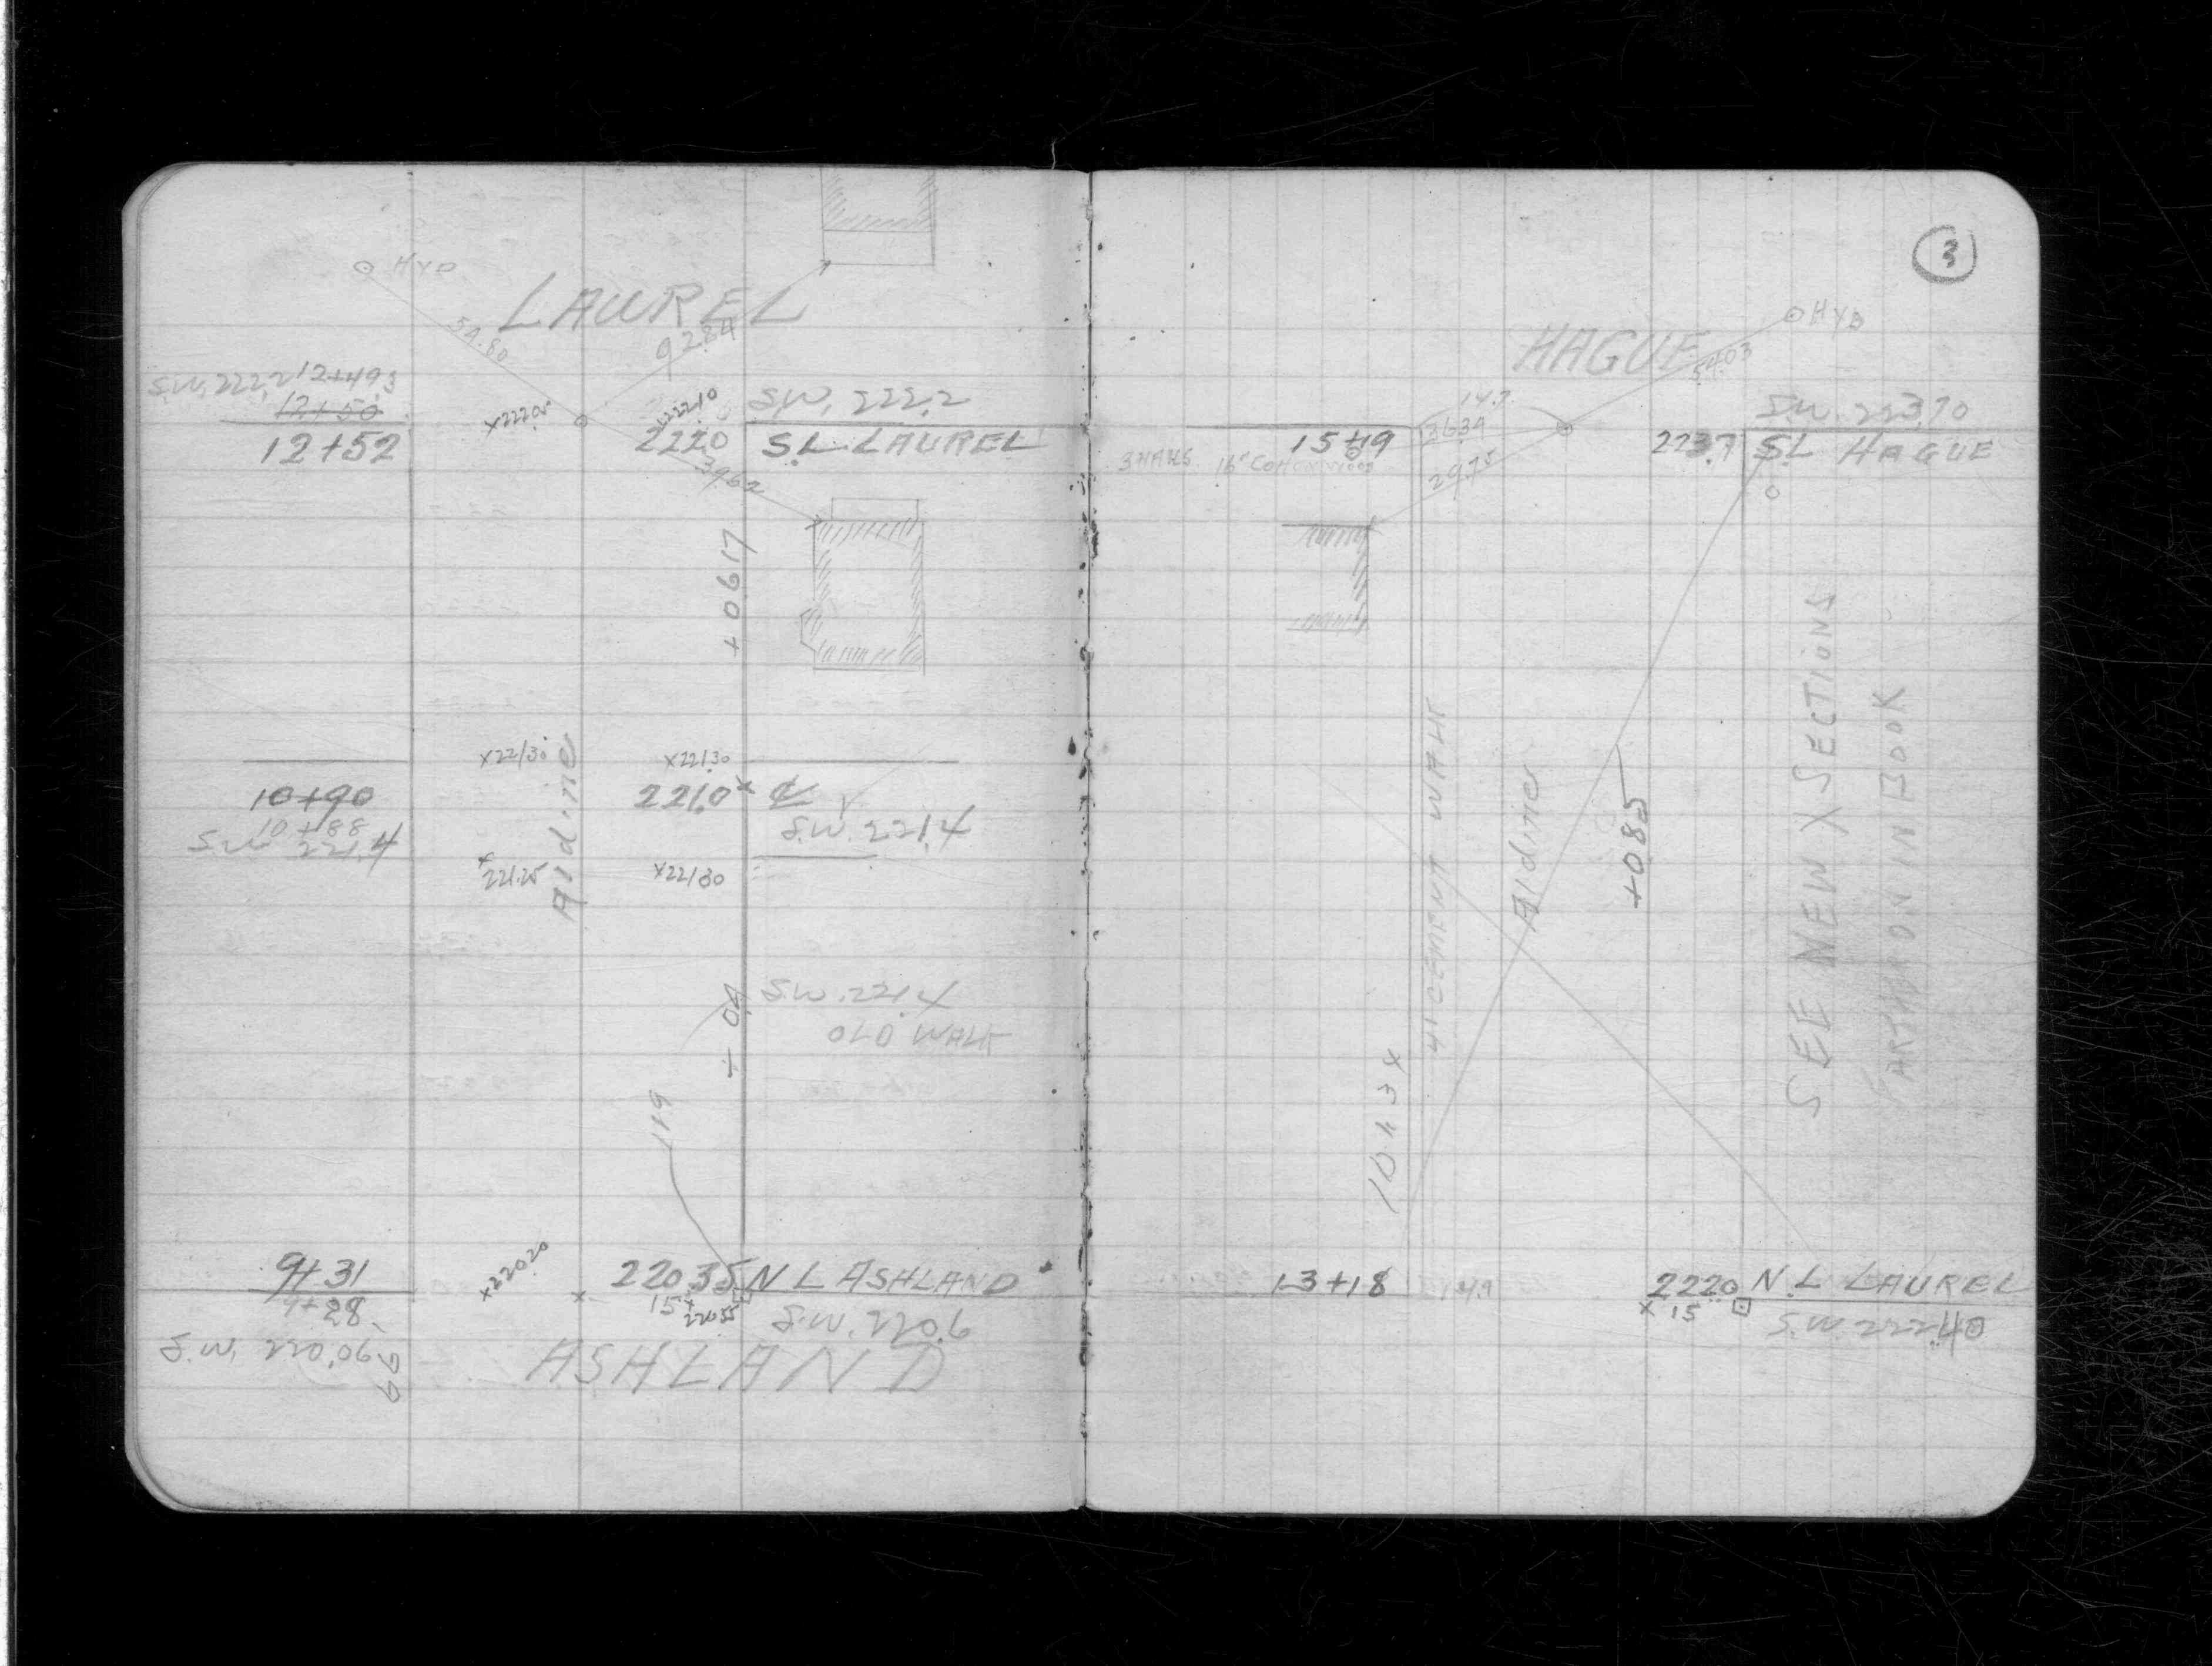 HYD
LAUREL
54.80
92.84
S.W. 222.2 12+49.3
12+50
12+52
x222.05
x222.10
2220
S.W. 222.2
S.L. LAUREL
39.62
+0.617
x221.30
x221.30
10+90
10+88
S.W. 221.4
221.0 x ¢
S.W. 221.4
x
221.25
x221.30
Aldine
+ 0.4
S.W. 221.4
OLD WALK
119
9+31
9+28
S.W. 220.06
x220.20
220 35
15 x
220.55
N L ASHLAND
S.W. 220.6
ASHLAND
3
HYD
HAGUE
54.03
14.7
36.39
29.75
3 NAILS 16" COTTONWOOD
15+19
223.7
S.W. 223.70
SL HAGUE
4' CEMENT WALK
Aldine
+0.85
SEE NEW X SECTIONS
FARTHER ON IN BOOK
13+18
14.9
222.0
x 15
N.L. LAUREL
S.W. 222.40